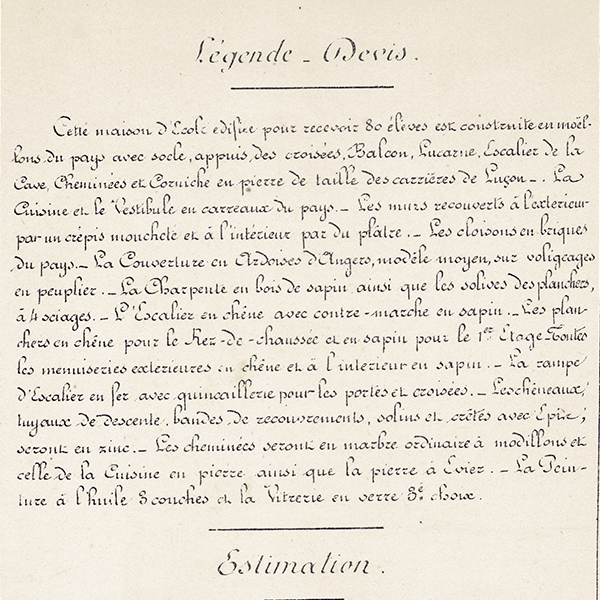 Légende - Devis.
Cette maison d'Ecole edifiée pour recevoir 80 élèves est construite en moël-
lons du pays avec socle, appuis des croisées, Balcon, Lucarne, Escalier de la
Cave, Cheminées et Corniche en pierre de taille des carrières de Luçon. La
Cuisine et le Vestibule en carreaux du pays. - Les murs recouverts à l'extérieur
par un crépis moucheté et à l'intérieur par du plâtre. - Les cloisons en briques
du pays. - La Couverture en Ardoises d'Angers, modèle moyen, sur voligeages
en peuplier. - La Charpente en bois de sapin ainsi que les solives des planchers,
à 4 sciages. - L'Escalier en chêne avec contre-marche en sapin. - Les plan-
chers en chêne pour le Rez-de-chaussée et en sapin pour le 1er Etage Toutes
les menuiseries exterieures en chêne et à l'interieur en sapin. - La rampe
d'Escalier en fer avec quincaillerie pour les portes et croisées. - Les chêneaux,
tuyaux de descente, bandes de recouvrements, solins et crêtes avec Epis;
seront en zinc. - Les cheminées seront en marbre ordinaire à modillons et
celle de la Cuisine en pierre ainsi que la pierre à Evier. - La Pein-
ture à l'huile 3 couches et la Vitrerie en verre 3e choix.
Estimation.